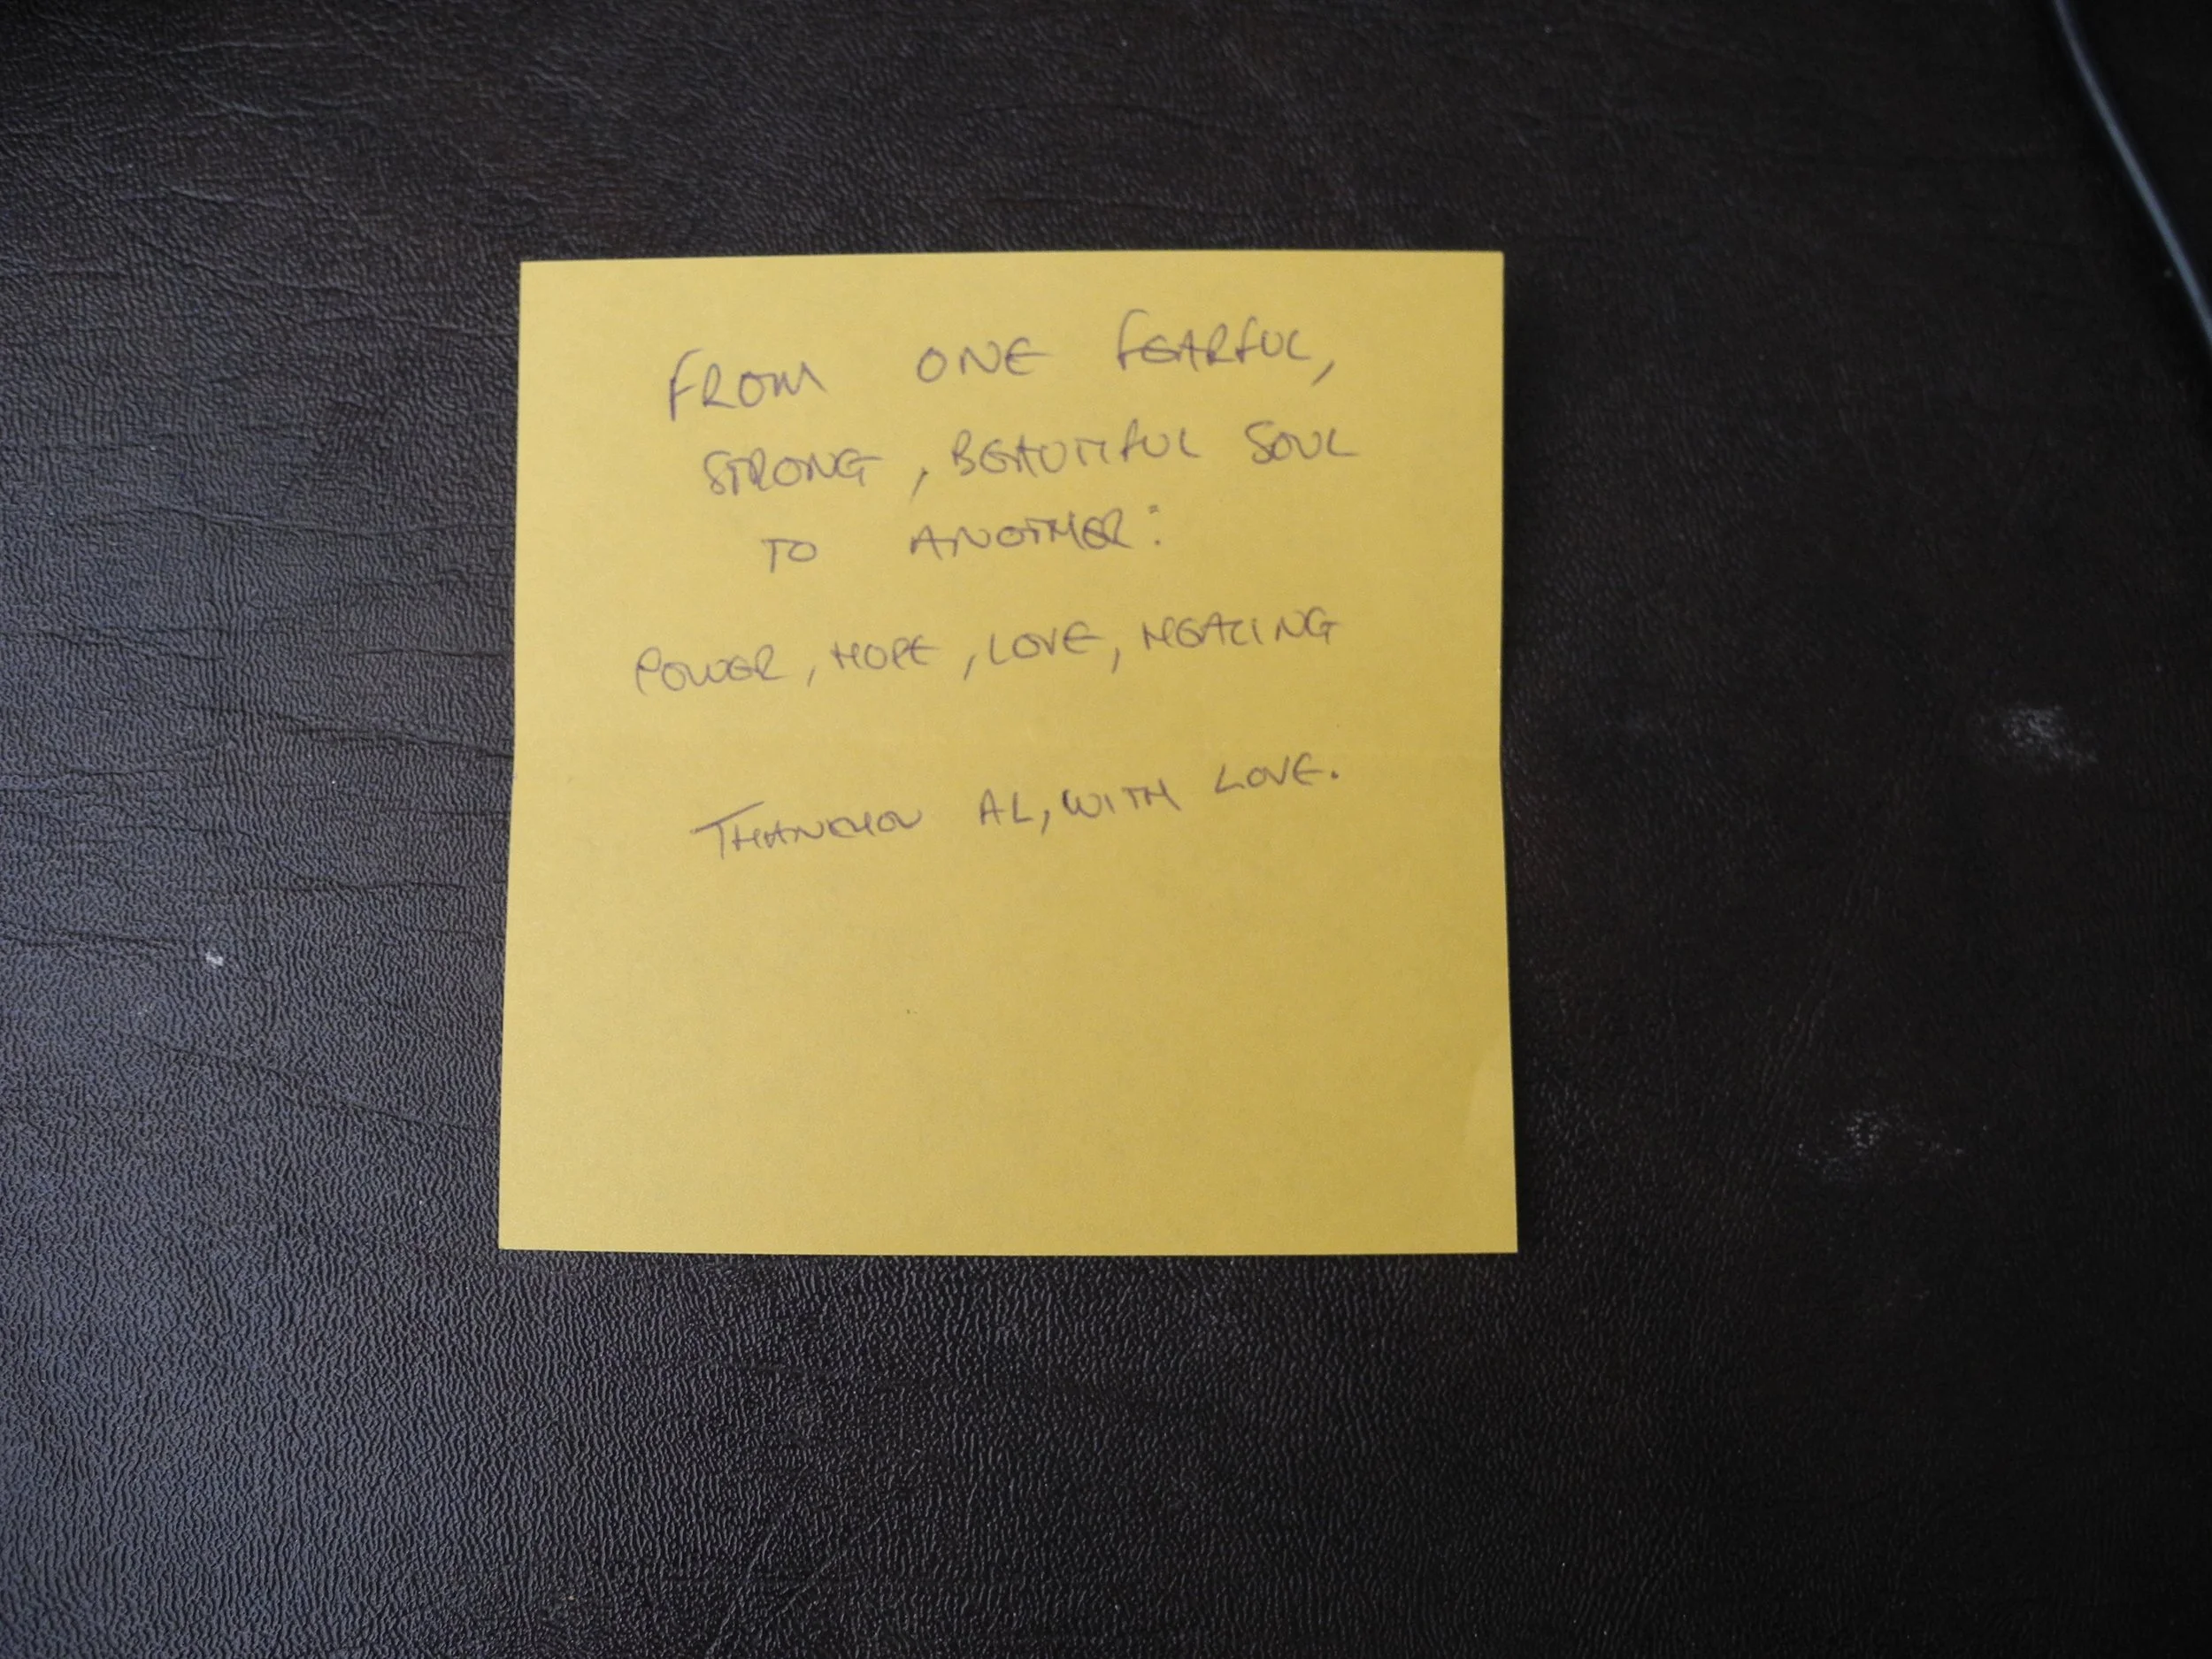 FROM ONE FEARFUL,
STRONG, BEAUTIFUL SOUL
TO ANOTHER:
POWER, HOPE, LOVE, HEALING
THANKYOU AL, WITH LOVE.